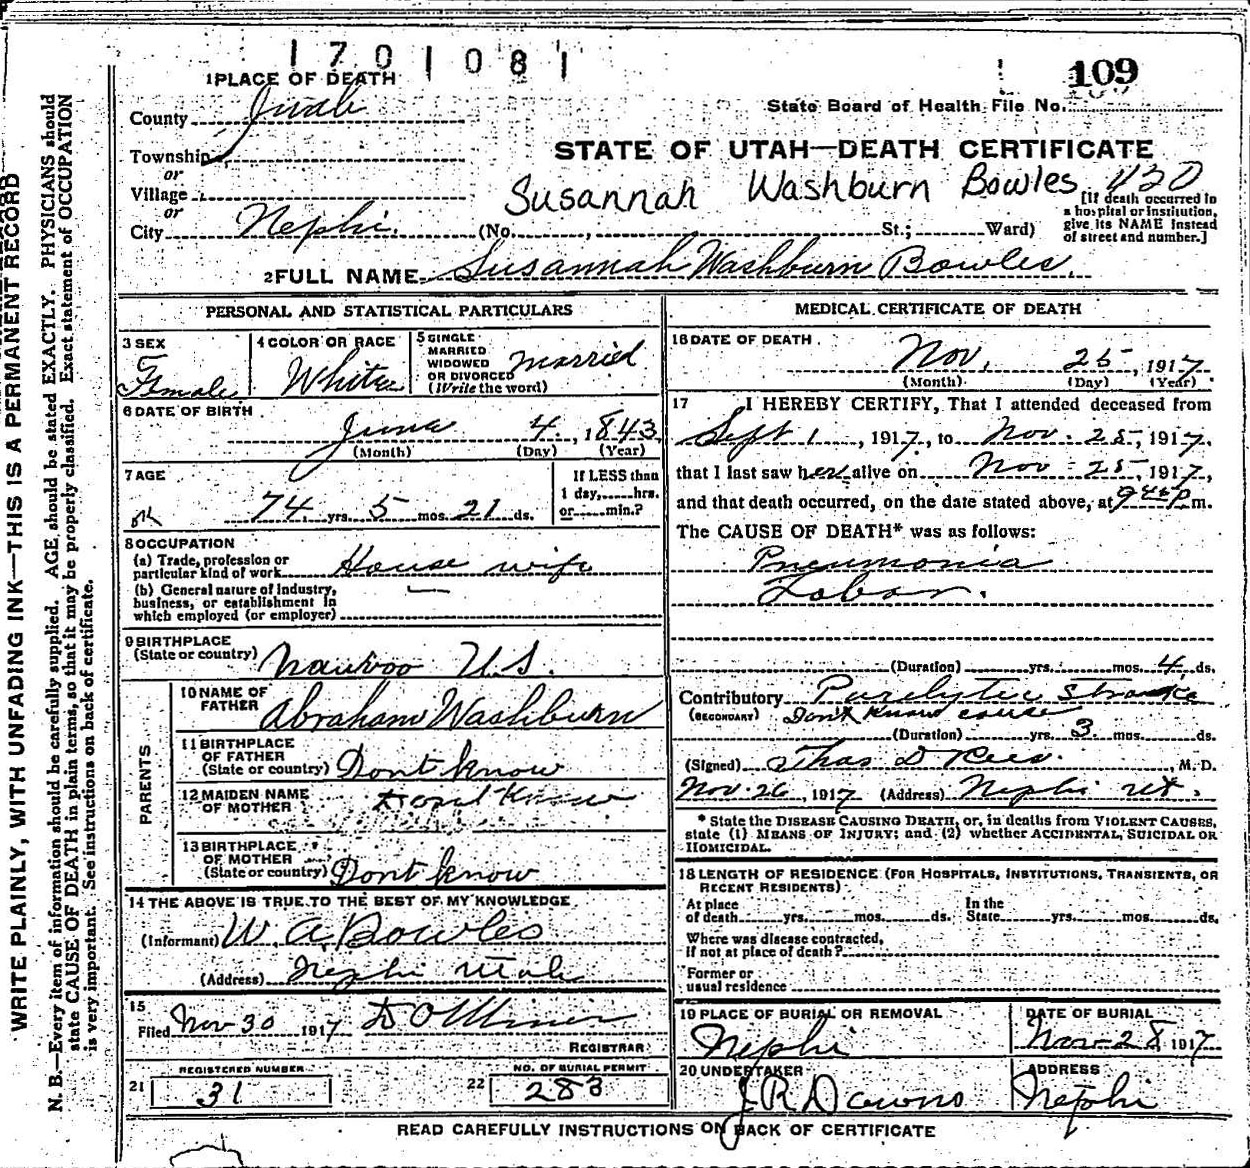 1701081
109
1 PLACE OF DEATH
State Board of Health File No.
County Juab
STATE OF UTAH—DEATH CERTIFICATE
Township
or
Village
Susannah Washburn Bowles 430
or
City Nephi. (No. , St.; Ward)
[If death occurred in a hospital or institution, give its NAME instead of street and number.]
2 FULL NAME Susannah Washburn Bowles.
PERSONAL AND STATISTICAL PARTICULARS
3 SEX
Female
4 COLOR OR RACE
White
5 SINGLE MARRIED WIDOWED OR DIVORCED (Write the word)
Married
6 DATE OF BIRTH
June 4, 1843
(Month) (Day) (Year)
7 AGE
74 yrs. 5 mos. 21 ds.
If LESS than
1 day, hrs.
or min.?
8 OCCUPATION
(a) Trade, profession or
particular kind of work House wife
(b) General nature of industry,
business, or establishment in
which employed (or employer)
9 BIRTHPLACE
(State or country) Nauvoo U.S.
PARENTS
10 NAME OF FATHER Abraham Washburn
11 BIRTHPLACE OF FATHER
(State or country) Dont know
12 MAIDEN NAME OF MOTHER Dont Know
13 BIRTHPLACE OF MOTHER
(State or country) Dont know
14 THE ABOVE IS TRUE TO THE BEST OF MY KNOWLEDGE
(Informant) W. A. Bowles
(Address) Nephi Utah
15
Filed Nov 30 1917
REGISTRAR
REGISTERED NUMBER
21 31
NO. OF BURIAL PERMIT
22 283
MEDICAL CERTIFICATE OF DEATH
16 DATE OF DEATH
Nov. 25, 1917
(Month) (Day) (Year)
17 I HEREBY CERTIFY, That I attended deceased from
Sept 1, 1917, to Nov. 25, 1917,
that I last saw her alive on Nov - 25, 1917,
and that death occurred, on the date stated above, at P.m.
The CAUSE OF DEATH* was as follows:
Pneumonia
Lobar.
(Duration) yrs. mos. 4 ds.
Contributory Paralytic Stroke
(SECONDARY) Don't Know cause
(Duration) yrs. 3 mos. ds.
(Signed) Thos D Rees. , M. D.
Nov. 26, 1917 (Address) Nephi Ut.
* State the DISEASE CAUSING DEATH, or, in deaths from VIOLENT CAUSES,
state (1) MEANS OF INJURY; and (2) whether ACCIDENTAL, SUICIDAL OR
HOMICIDAL.
18 LENGTH OF RESIDENCE (FOR HOSPITALS, INSTITUTIONS, TRANSIENTS, OR
RECENT RESIDENTS)
At place of death yrs. mos. ds. In the State yrs. mos. ds.
Where was disease contracted,
if not at place of death?
Former or
usual residence
19 PLACE OF BURIAL OR REMOVAL
Nephi
DATE OF BURIAL
Nov 28, 1917
20 UNDERTAKER
J R Downs
ADDRESS
Nephi
READ CAREFULLY INSTRUCTIONS ON BACK OF CERTIFICATE
WRITE PLAINLY, WITH UNFADING INK—THIS IS A PERMANENT RECORD
N. B.—Every item of information should be carefully supplied. AGE should be stated EXACTLY. PHYSICIANS should
state CAUSE OF DEATH in plain terms, so that it may be properly classified. Exact statement of OCCUPATION
is very important. See instructions on back of certificate.